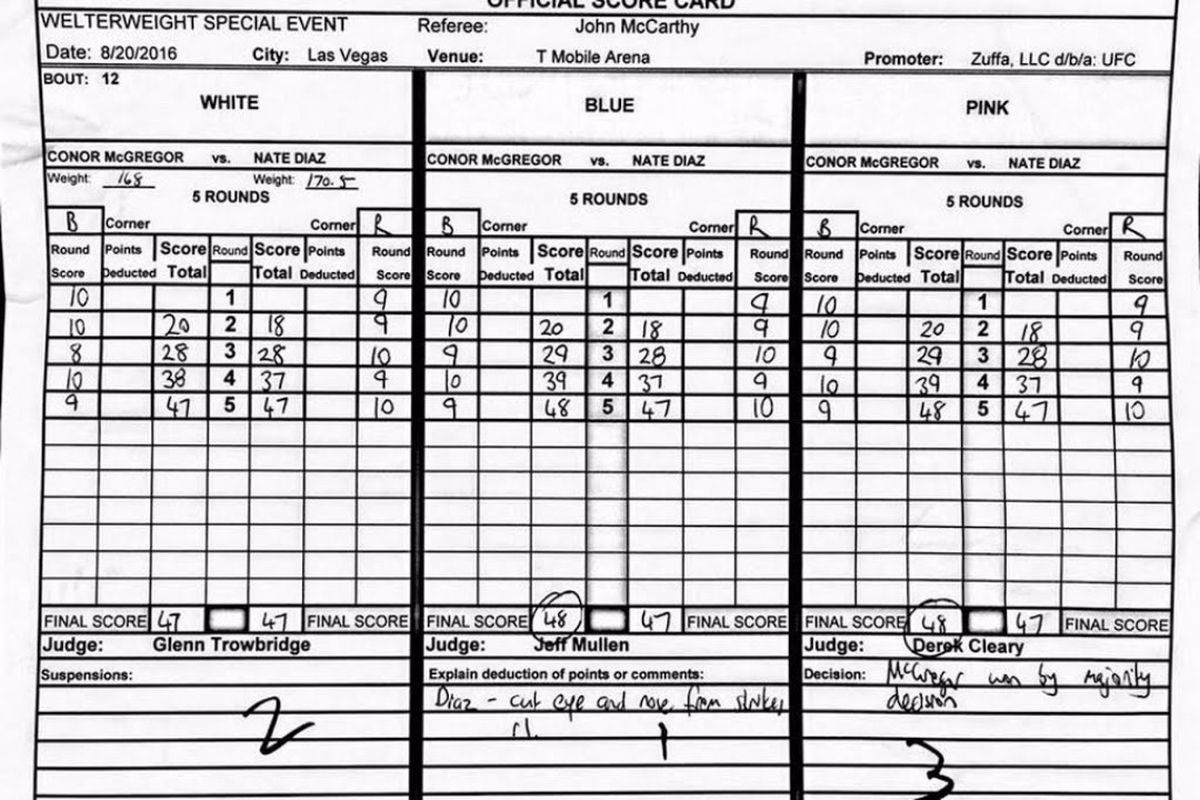 OFFICIAL SCORE CARD
WELTERWEIGHT SPECIAL EVENT Referee: John McCarthy
Date: 8/20/2016 City: Las Vegas Venue: T Mobile Arena Promoter: Zuffa, LLC d/b/a: UFC
BOUT: 12
WHITE BLUE PINK
CONOR McGREGOR vs. NATE DIAZ CONOR McGREGOR vs. NATE DIAZ CONOR McGREGOR vs. NATE DIAZ
Weight: 168 Weight: 170.5
5 ROUNDS 5 ROUNDS 5 ROUNDS
B Corner Corner R B Corner Corner R B Corner Corner R
Round Points Score Round Score Points Round Round Points Score Round Score Points Round Round Points Score Round Score Points Round
Score Deducted Total Total Deducted Score Score Deducted Total Total Deducted Score Score Deducted Total Total Deducted Score
10 1 9 10 1 9 10 1 9
10 20 2 18 9 10 20 2 18 9 10 20 2 18 9
8 28 3 28 10 9 29 3 28 10 9 29 3 28 10
10 38 4 37 9 10 39 4 37 9 10 39 4 37 9
9 47 5 47 10 9 48 5 47 10 9 48 5 47 10
FINAL SCORE 47 47 FINAL SCORE FINAL SCORE 48 47 FINAL SCORE FINAL SCORE 48 47 FINAL SCORE
Judge: Glenn Trowbridge Judge: Jeff Mullen Judge: Derek Cleary
Suspensions: Explain deduction of points or comments: Decision: McGregor won by majority
Diaz - cut eye and nose from strikes decision
r1.
2 1 3